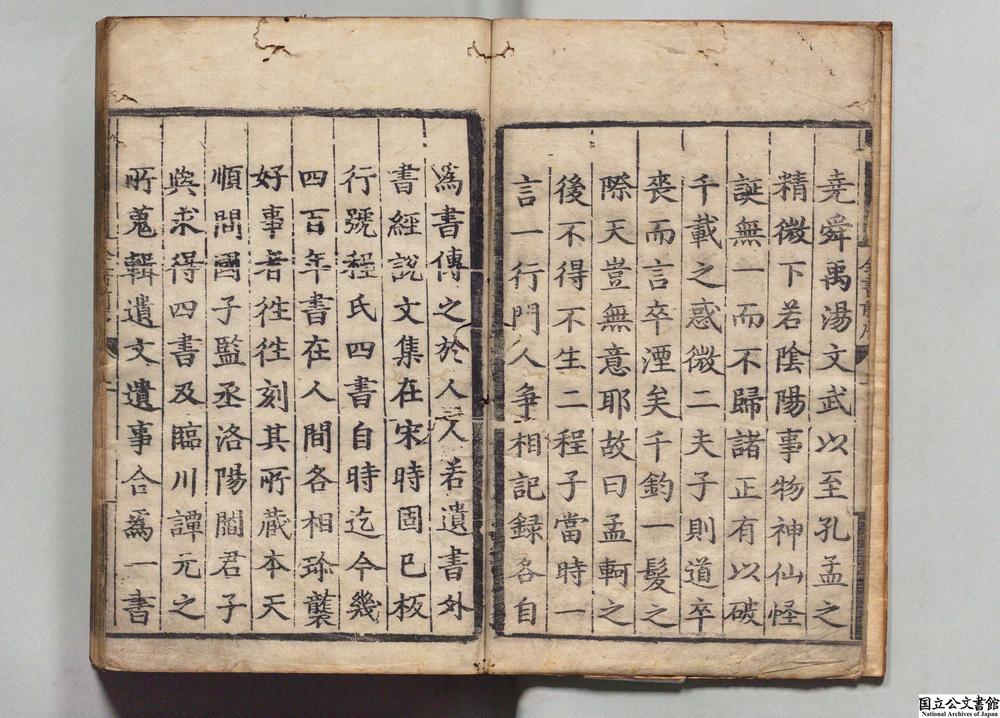 堯舜禹湯文武以至孔孟之
精微下若陰陽事物神仙怪
誕無一而不歸諸正有以破
千載之惑微二夫子則道卒
喪而言卒湮矣千鈞一髮之
際天豈無意耶故曰孟軻之
後不得不生二程子當時一
言一行門人争相記録各自
爲書傳之於人人若遺書外
書經説文集在宋時固已板
行號程氏四書自時迄今幾
四百年書在人間各相珎襲
好事者徃徃刻其所蔵本天
順間國子監丞洛陽閻君子
與求得四書及臨川譚元之
所蒐輯遺文遺事合爲一書
国立公文書館
National Archives of Japan